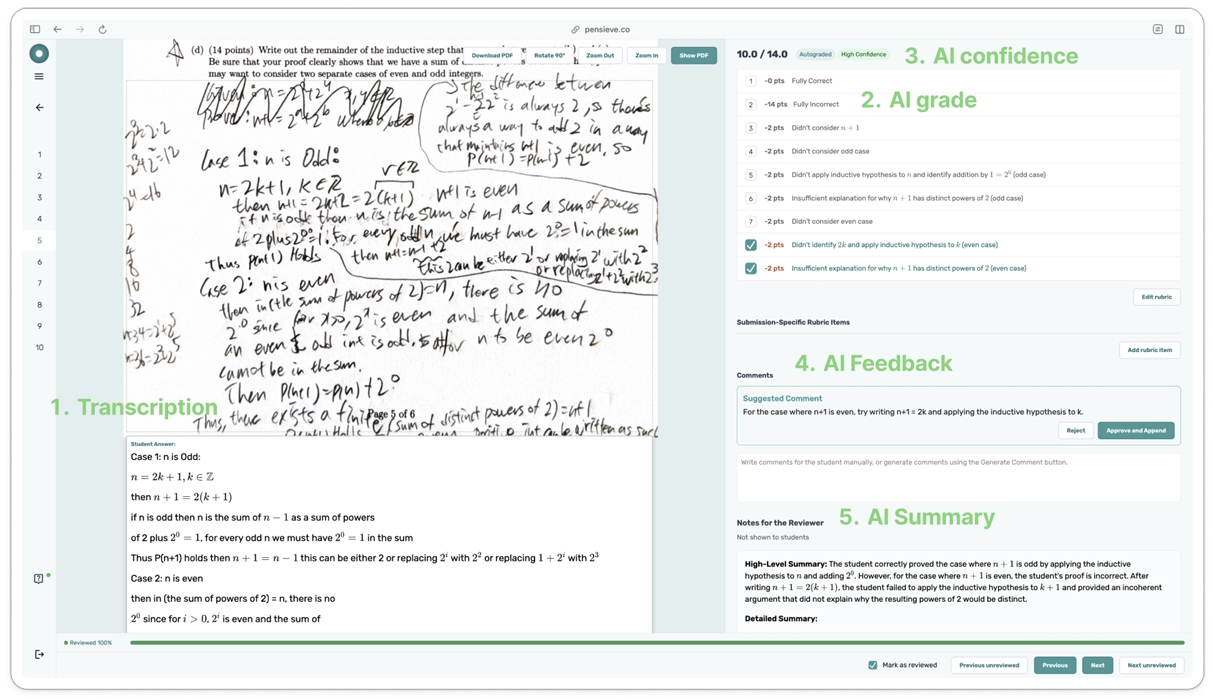 pensieve.co
(d) (14 points) Write out the remainder of the inductive step that
Be sure that your proof clearly shows that we have a sum of
may want to consider two separate cases of even and odd integers.
Download PDF
Rotate 90°
Zoom Out
Zoom In
Show PDF
the difference between
2¹ - 2² is always 2, so there's
always a way to add 2 in a way
that maintains n+1 is even, so
P(n+1) = P(n-1) + 2
Case 1: n is Odd:
n=2k+1, k∈ℤ
then n+1 = 2k+2 = 2(k+1) n+1 is even
if n is odd then n is the sum of n-1 as a sum of powers
of 2 plus 2⁰=1. For every odd n we must have 2⁰=1 in the sum
Thus P(n+1) Holds then n+1=n-1+2
this 2 can be either 2¹ or replacing 2¹ with 2²
or replacing 2¹+2² with 2³
Case 2: n is even
then in (the sum of powers of 2)=n, there is no
2⁰ since for x>0, 2ˣ is even and the sum of
an even & odd int is odd, so for n to be even 2⁰
cannot be in the sum.
Then P(n+1)=P(n)+2⁰
Thus, there exists a finite (sum of distinct powers of 2)=n+1
Page 5 of 6
1
2
3
4
5
6
7
8
9
10
1. Transcription
Student Answer:
Case 1: n is Odd:
n = 2k + 1, k ∈ ℤ
then n + 1 = 2(k + 1)
if n is odd then n is the sum of n − 1 as a sum of powers
of 2 plus 2⁰ = 1, for every odd n we must have 2⁰ = 1 in the sum
Thus P(n+1) holds then n + 1 = n − 1 this can be either 2 or replacing 2ⁱ with 2² or replacing 1 + 2ⁱ with 2³
Case 2: n is even
then in (the sum of powers of 2) = n, there is no
2⁰ since for i > 0, 2ⁱ is even and the sum of
10.0 / 14.0 Autograded High Confidence
3. AI confidence
1 -0 pts Fully Correct
2 -14 pts Fully Incorrect
2. AI grade
3 -2 pts Didn't consider n + 1
4 -2 pts Didn't consider odd case
5 -2 pts Didn't apply inductive hypothesis to n and identify addition by 1 = 2⁰ (odd case)
6 -2 pts Insufficient explanation for why n + 1 has distinct powers of 2 (odd case)
7 -2 pts Didn't consider even case
-2 pts Didn't identify 2k and apply inductive hypothesis to k (even case)
-2 pts Insufficient explanation for why n + 1 has distinct powers of 2 (even case)
Edit rubric
Submission-Specific Rubric Items
Add rubric item
4. AI Feedback
Comments
Suggested Comment
For the case where n+1 is even, try writing n+1 = 2k and applying the inductive hypothesis to k.
Reject
Approve and Append
Write comments for the student manually, or generate comments using the Generate Comment button.
5. AI Summary
Notes for the Reviewer
Not shown to students
High-Level Summary: The student correctly proved the case where n + 1 is odd by applying the inductive
hypothesis to n and adding 2⁰. However, for the case where n + 1 is even, the student's proof is incorrect. After
writing n + 1 = 2(k + 1), the student failed to apply the inductive hypothesis to k + 1 and provided an incoherent
argument that did not explain why the resulting powers of 2 would be distinct.
Detailed Summary:
Reviewed 100%
Mark as reviewed
Previous unreviewed
Previous
Next
Next unreviewed